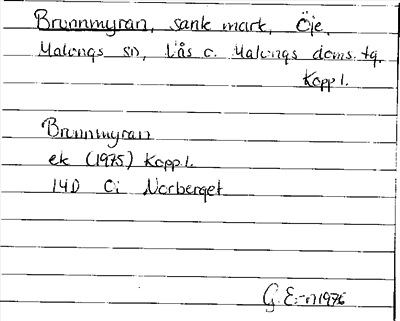 Brunnmyran, sank mark, Öje,
Malungs sn, Nås o. Malungs doms. tg.
Kopp l.
Brunnmyran
ek (1975) Kopp l.
14D 0i Norberget
G. E-n 1976